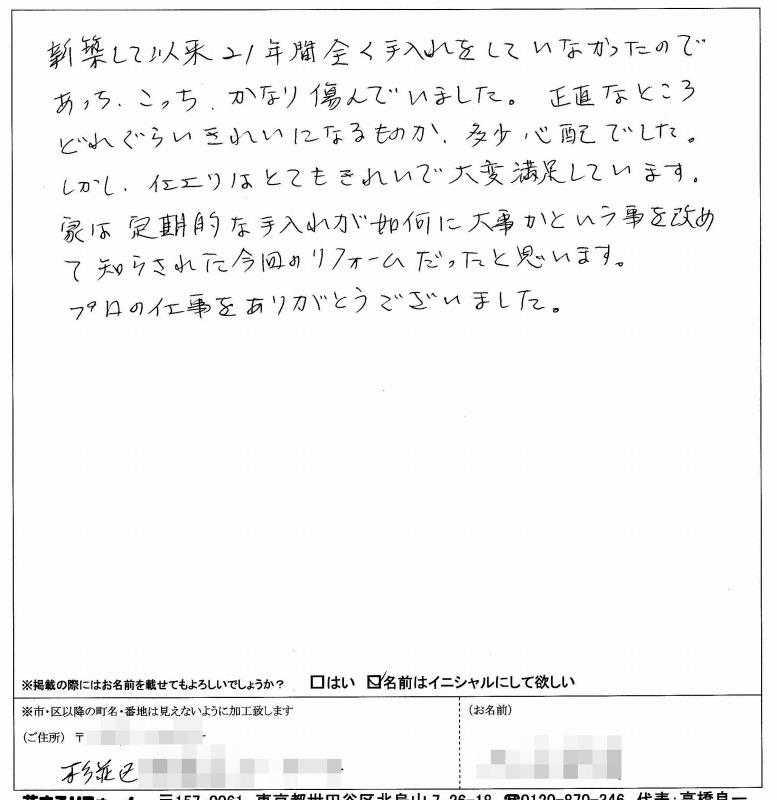 新築して以来21年間全く手入れをしていなかったので
あっち、こっち、かなり傷んでいました。正直なところ
どれぐらいきれいになるものか、多少心配でした。
しかし、仕上りはとてもきれいで大変満足しています。
家は定期的な手入れが如何に大事かという事を改め
て知らされた今回のリフォームだったと思います。
プロの仕事をありがとうございました。
※掲載の際にはお名前を載せてもよろしいでしょうか? □はい ☑名前はイニシャルにして欲しい
※市・区以降の町名・番地は見えないように加工致します
(お名前)
(ご住所) 〒
杉並区
〒157-0061 東京都世田谷区北烏山7-26-18 ☎0120-870-246 代表:高橋良一